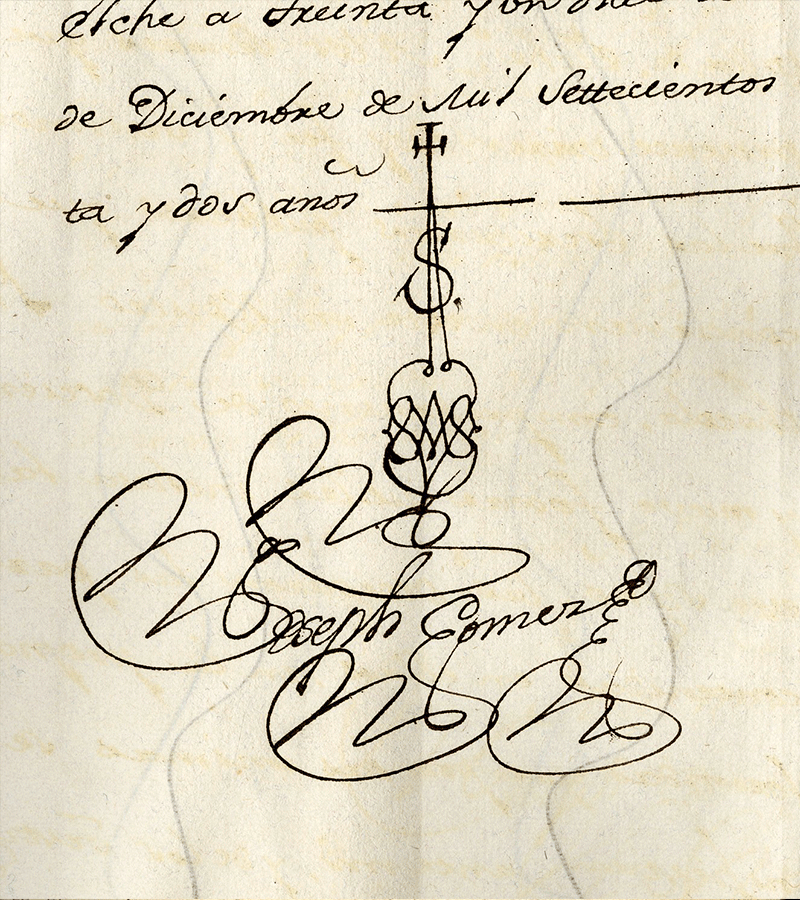 elche a treinta y un dias
de Diciembre de Mil Settecientos
ta y dos años
S.
Joseph Gomez